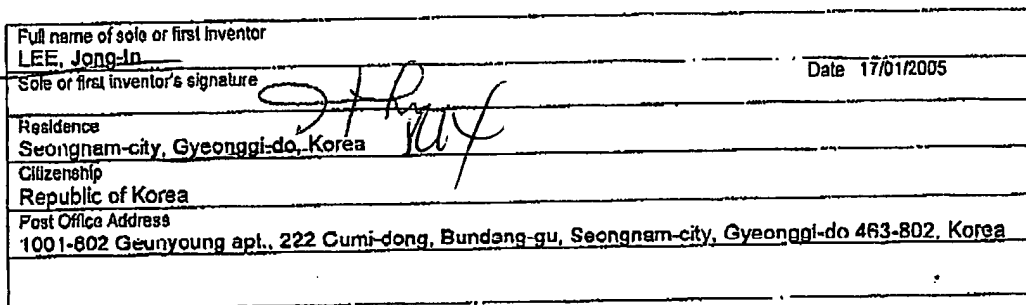 Full name of sole or first inventor
LEE, Jong-In
Sole or first inventor's signature
Date 17/01/2005
Residence
Seongnam-city, Gyeonggi-do, Korea
Citizenship
Republic of Korea
Post Office Address
1001-802 Geunyoung apt., 222 Cumi-dong, Bundang-gu, Seongnam-city, Gyeonggi-do 463-802, Korea